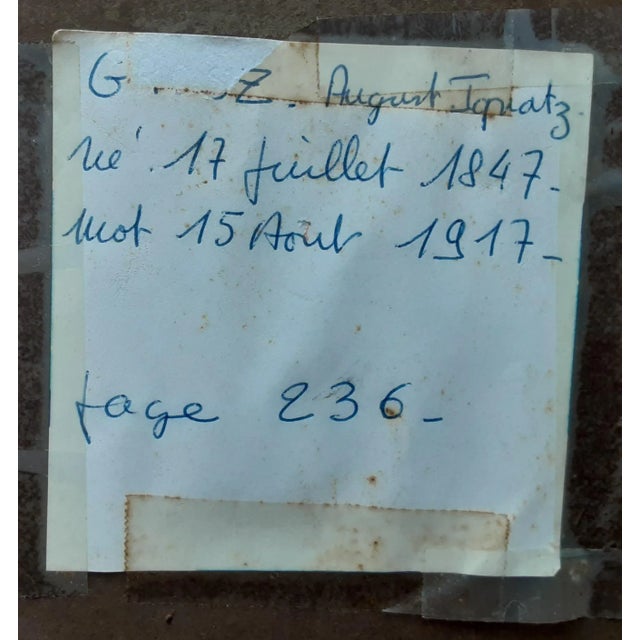 G . Z . August Ignatz
né 17 juillet 1847-
mot 15 Aout 1917-
page 236-